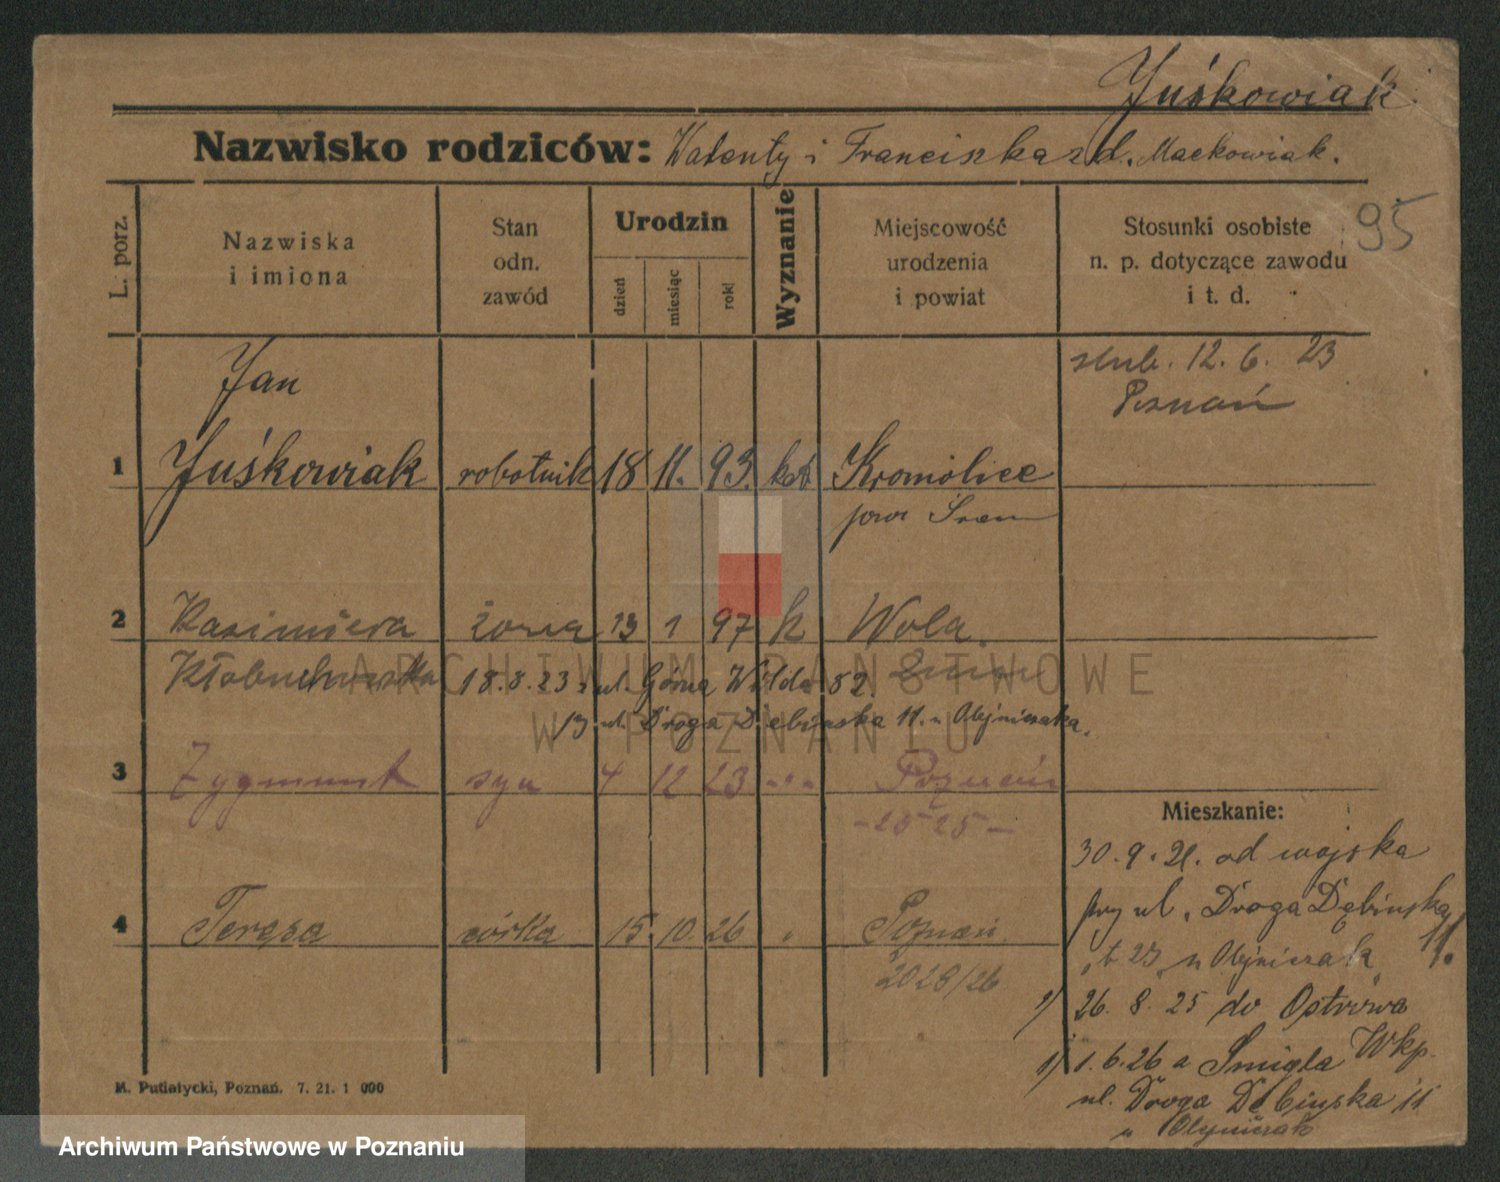 Juśkowiak
Nazwisko rodziców: Walenty i Franciszka z d. Maćkowiak.
95
L. porz.
Nazwiska
i imiona
Stan
odn.
zawód
Urodzin
dzień
miesiąc
rok
Wyznanie
Miejscowość
urodzenia
i powiat
Stosunki osobiste
n. p. dotyczące zawodu
i t. d.
ślub. 12. 6. 23
Poznań
Jan
1 Juśkowiak robotnik 18 11. 93. kat Kromolice
pow Śrem
2 Kazimiera żona 13 1 97 k Wola.
Kłobuchowska 18.8.23 ul. Górna Wilda 82.
ul. Droga Dębinska 11. u Olejniczaka.
3 Zygmunt syn 4 12 23 -"- Poznań
-2525-
4 Teresa córka 15. 10. 26 " Poznań
2028/26
Mieszkanie:
30. 9. 21. od wojska
przy ul. Droga Dębinska
11.
u Olejniczak
26. 8. 25 do Ostrowa
Wkp.
1.6.26 a Śmigla
ul. Droga Dębinska 11
u Olejniczak
M. Putiatycki, Poznań. 7. 21. 1 000
ARCHIWUM PAŃSTWOWE
W POZNANIU
Archiwum Państwowe w Poznaniu